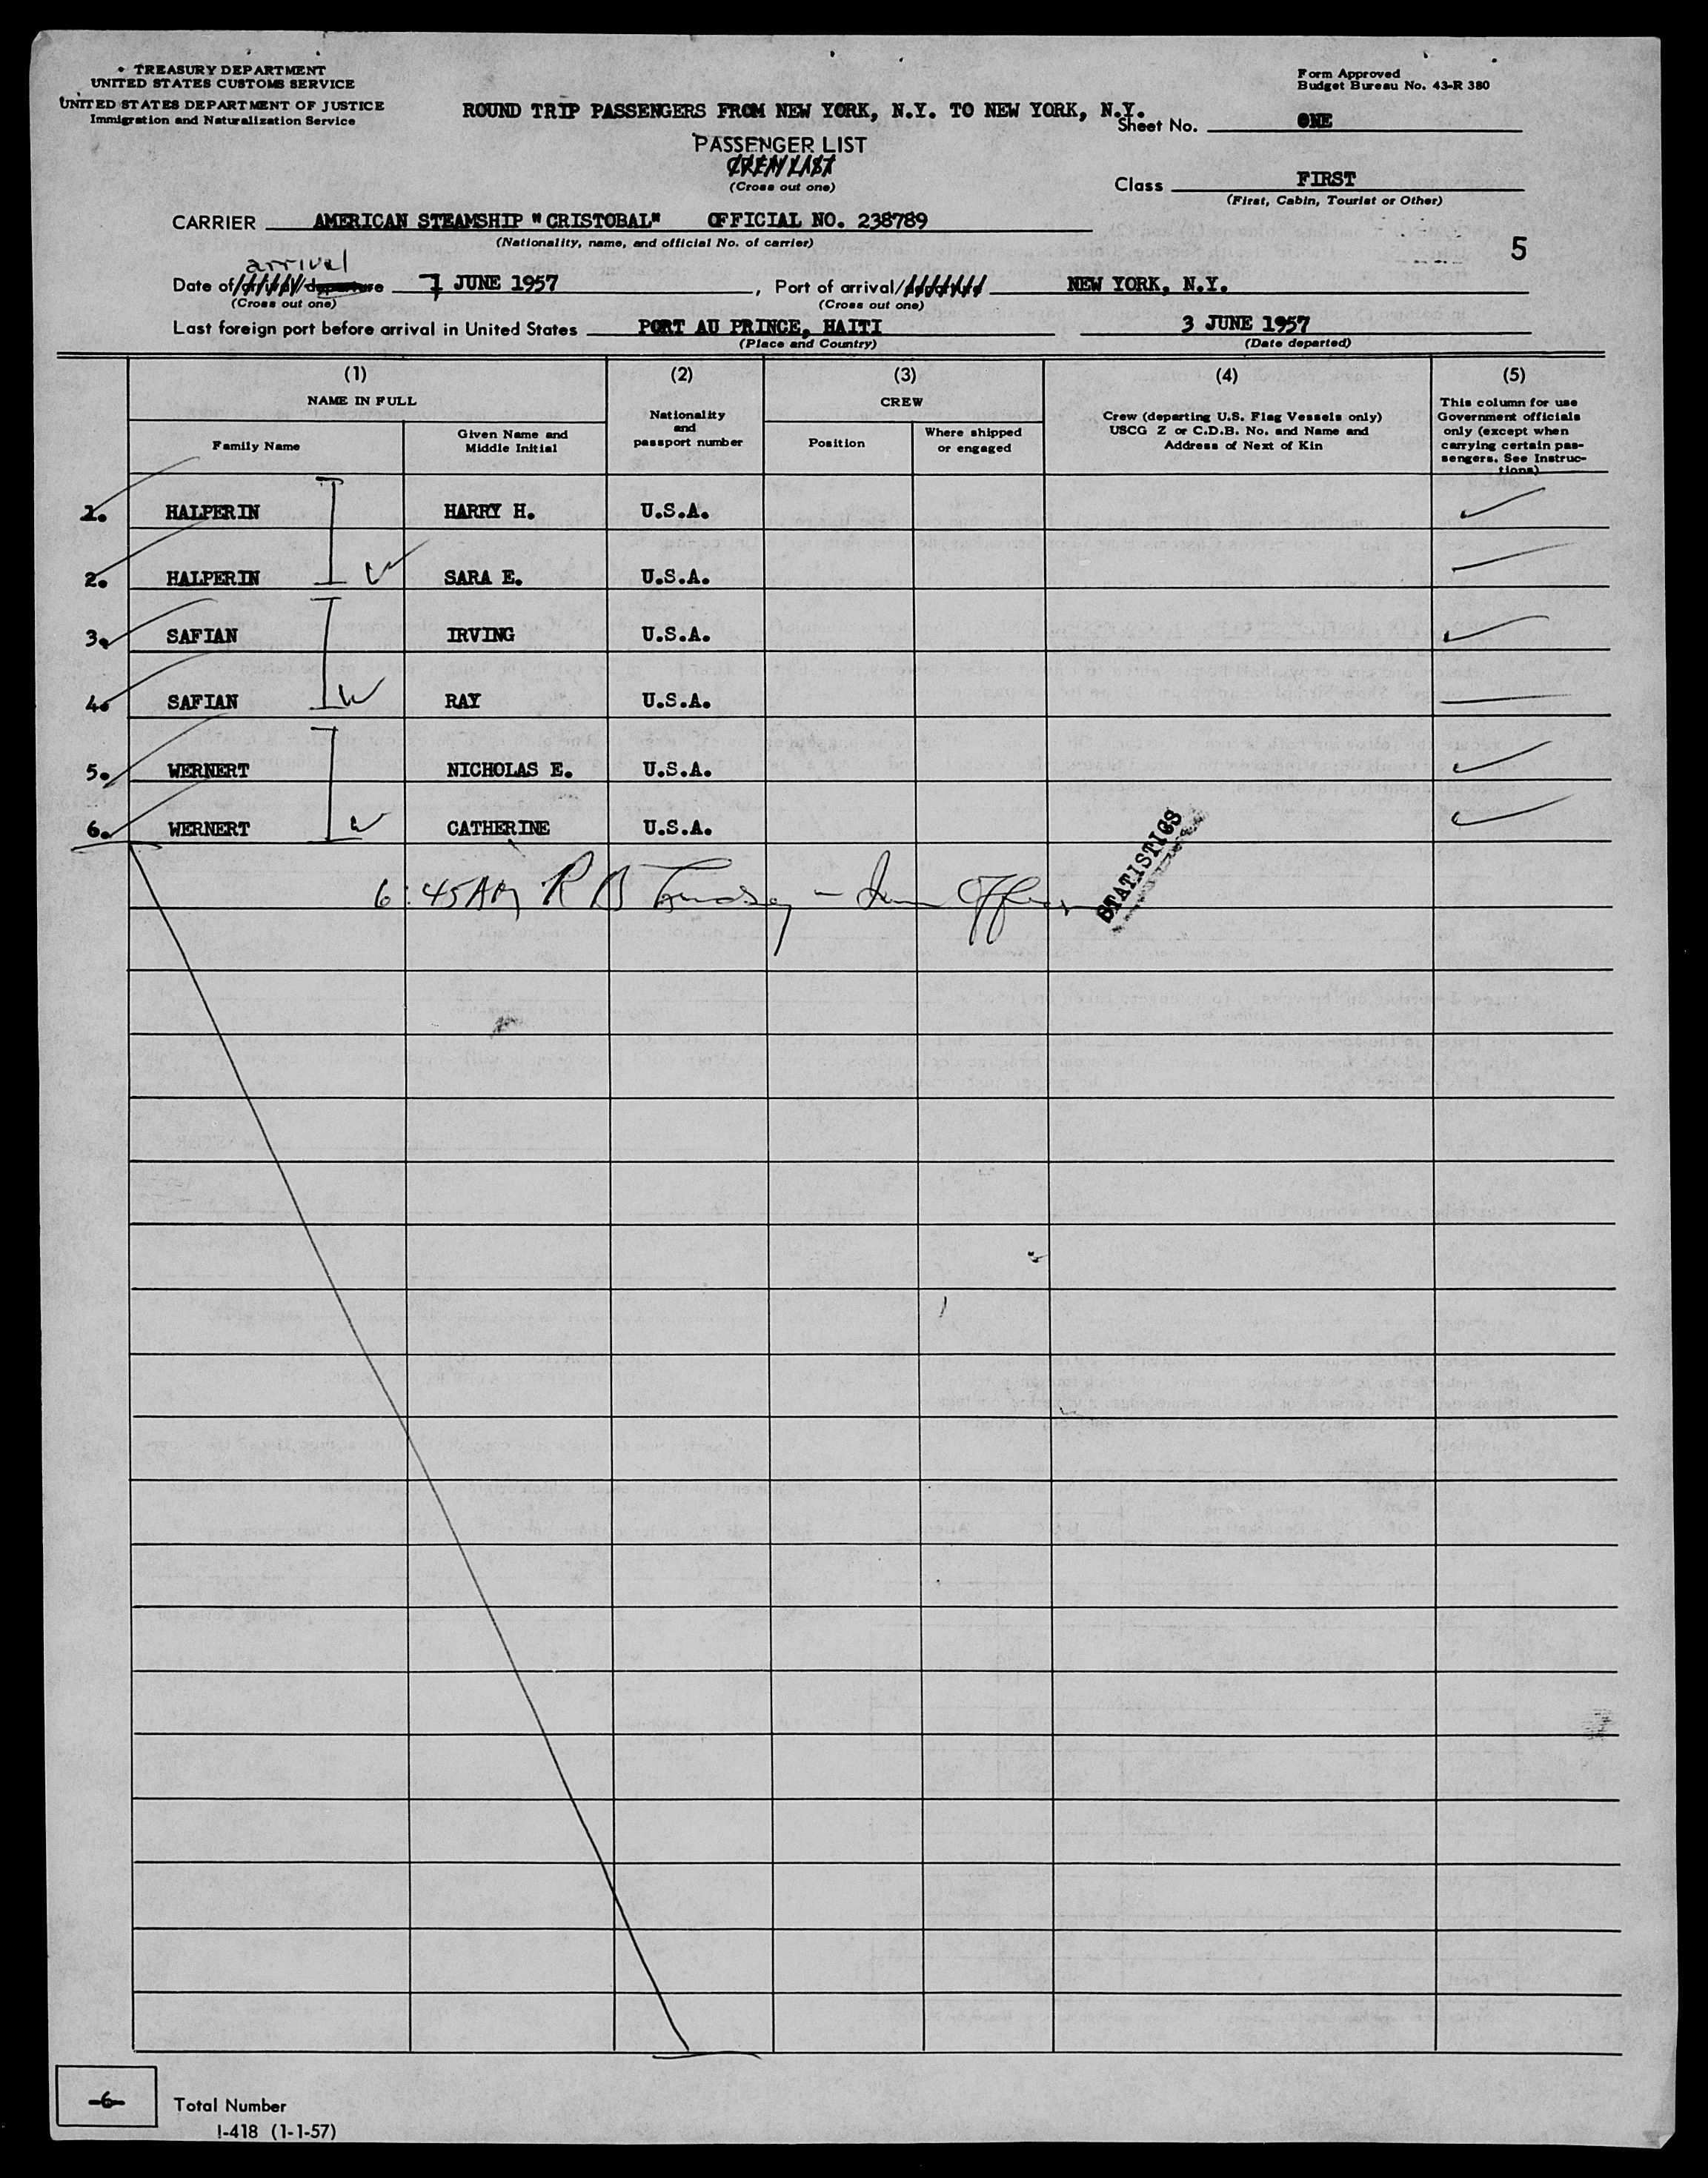 TREASURY DEPARTMENT
UNITED STATES CUSTOMS SERVICE
UNITED STATES DEPARTMENT OF JUSTICE
Immigration and Naturalization Service
Form Approved
Budget Bureau No. 43-R 380
ROUND TRIP PASSENGERS FROM NEW YORK, N.Y. TO NEW YORK, N.Y.
Sheet No. ONE
PASSENGER LIST
CREW LIST
(Cross out one)
Class FIRST
(First, Cabin, Tourist or Other)
CARRIER AMERICAN STEAMSHIP "CRISTOBAL" OFFICIAL NO. 238789
(Nationality, name, and official No. of carrier)
5
arrival
Date of arrival/departure 7 JUNE 1957, Port of arrival/ NEW YORK, N.Y.
(Cross out one) (Cross out one)
Last foreign port before arrival in United States PORT AU PRINCE, HAITI 3 JUNE 1957
(Place and Country) (Date departed)
(1) (2) (3) (4) (5)
NAME IN FULL
Family Name
Given Name and
Middle Initial
Nationality
and
passport number
CREW
Position
Where shipped
or engaged
Crew (departing U.S. Flag Vessels only)
USCG Z or C.D.B. No. and Name and
Address of Next of Kin
This column for use
Government officials
only (except when
carrying certain pas-
sengers. See Instruc-
tions)
1. HALPERIN HARRY H. U.S.A.
2. HALPERIN SARA E. U.S.A.
3. SAFIAN IRVING U.S.A.
4. SAFIAN RAY U.S.A.
5. WERNERT NICHOLAS E. U.S.A.
6. WERNERT CATHERINE U.S.A.
STATISTICS
6:45AM R B Lindsey - Imm Officer
-6-
Total Number
I-418 (1-1-57)